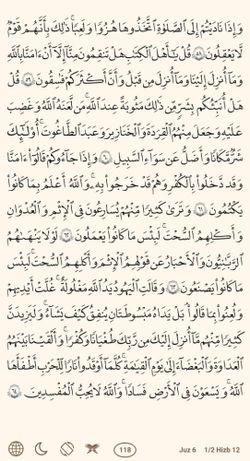 وَإِذَا نَادَيْتُمْ إِلَى ٱلصَّلَوٰةِ ٱتَّخَذُوهَا هُزُوًا وَلَعِبًا ۚ ذَٰلِكَ بِأَنَّهُمْ قَوْمٌ
لَّا يَعْقِلُونَ ٥٨ قُلْ يَـٰٓأَهْلَ ٱلْكِتَـٰبِ هَلْ تَنقِمُونَ مِنَّآ إِلَّآ أَنْ ءَامَنَّا بِٱللَّهِ
وَمَآ أُنزِلَ إِلَيْنَا وَمَآ أُنزِلَ مِن قَبْلُ وَأَنَّ أَكْثَرَكُمْ فَـٰسِقُونَ ٥٩ قُلْ
هَلْ أُنَبِّئُكُم بِشَرٍّ مِّن ذَٰلِكَ مَثُوبَةً عِندَ ٱللَّهِ ۚ مَن لَّعَنَهُ ٱللَّهُ وَغَضِبَ
عَلَيْهِ وَجَعَلَ مِنْهُمُ ٱلْقِرَدَةَ وَٱلْخَنَازِيرَ وَعَبَدَ ٱلطَّـٰغُوتَ ۚ أُو۟لَـٰٓئِكَ
شَرٌّ مَّكَانًا وَأَضَلُّ عَن سَوَآءِ ٱلسَّبِيلِ ٦٠ وَإِذَا جَآءُوكُمْ قَالُوٓا۟ ءَامَنَّا
وَقَد دَّخَلُوا۟ بِٱلْكُفْرِ وَهُمْ قَدْ خَرَجُوا۟ بِهِۦ ۚ وَٱللَّهُ أَعْلَمُ بِمَا كَانُوا۟
يَكْتُمُونَ ٦١ وَتَرَىٰ كَثِيرًا مِّنْهُمْ يُسَـٰرِعُونَ فِى ٱلْإِثْمِ وَٱلْعُدْوَٰنِ
وَأَكْلِهِمُ ٱلسُّحْتَ ۚ لَبِئْسَ مَا كَانُوا۟ يَعْمَلُونَ ٦٢ لَوْلَا يَنْهَىٰهُمُ
ٱلرَّبَّـٰنِيُّونَ وَٱلْأَحْبَارُ عَن قَوْلِهِمُ ٱلْإِثْمَ وَأَكْلِهِمُ ٱلسُّحْتَ ۚ لَبِئْسَ
مَا كَانُوا۟ يَصْنَعُونَ ٦٣ وَقَالَتِ ٱلْيَهُودُ يَدُ ٱللَّهِ مَغْلُولَةٌ ۚ غُلَّتْ أَيْدِيهِمْ
وَلُعِنُوا۟ بِمَا قَالُوا۟ ۘ بَلْ يَدَاهُ مَبْسُوطَتَانِ يُنفِقُ كَيْفَ يَشَآءُ ۚ وَلَيَزِيدَنَّ
كَثِيرًا مِّنْهُم مَّآ أُنزِلَ إِلَيْكَ مِن رَّبِّكَ طُغْيَـٰنًا وَكُفْرًا ۚ وَأَلْقَيْنَا بَيْنَهُمُ
ٱلْعَدَٰوَةَ وَٱلْبَغْضَآءَ إِلَىٰ يَوْمِ ٱلْقِيَـٰمَةِ ۚ كُلَّمَآ أَوْقَدُوا۟ نَارًا لِّلْحَرْبِ أَطْفَأَهَا
ٱللَّهُ ۚ وَيَسْعَوْنَ فِى ٱلْأَرْضِ فَسَادًا ۚ وَٱللَّهُ لَا يُحِبُّ ٱلْمُفْسِدِينَ ٦٤
118 Juz 6 1/2 Hizb 12